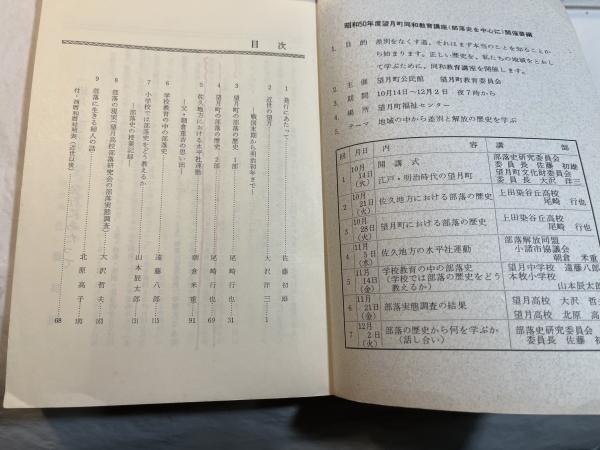 昭和50年度望月町同和教育講座(部落史を中心に)開催要綱
1. 目的 差別をなくす道、それはまず本当のことを知ることか
ら始まります。正しい歴史を、私たちの地域をとおし
て学ぶために、同和教育講座を開催します。
2. 主催 望月町公民館 望月町教育委員会
3. 期間 10月14日〜12月2日 夜7時から
4. 場所 望月町福祉センター
5. テーマ 地域の中から差別と解放の歴史を学ぶ
回 月日 内容 講師
1 10月14日(火) 開講式 江戸・明治時代の望月町 部落史研究委員会 委員長 佐藤初雄 望月町文化財委員会 委員長 大沢洋三
2 10月21日(火) 佐久地方における部落の歴史 上田染谷丘高校 尾崎行也
3 10月28日(火) 望月町における部落の歴史 上田染谷丘高校 尾崎行也
4 11月5日(水) 佐久地方の水平社運動 部落解放同盟 小諸市協議会 朝倉米重
5 11月14日(金) 学校教育の中の部落史(学校では部落の歴史をどう教えるか) 望月中学校 遠藤八郎 本牧小学校 山本辰太郎
6 11月21日(金) 部落実態調査の結果 望月高校 大沢哲 望月高校 北原高
7 12月2日(火) 部落の歴史から何を学ぶか(話し合い) 部落史研究委員会 委員長 佐藤初
目次
1 発行にあたって 佐藤初雄
2 近世の望月 大沢洋三 1
―戦国末期から明治初年まで―
3 望月町の部落の歴史 1部 尾崎行也 31
4 望月町の部落の歴史 2部 尾崎行也 69
5 佐久地方における水平社運動 朝倉米重 91
―父・朝倉重吉の思い出―
6 学校教育の中の部落史 遠藤八郎 115
7 小学校では部落史をどう教えるか 山本辰太郎 131
―部落史の授業記録―
8 部落の現実(望月高校部落研究会の部落実態調査) 大沢哲夫
9 部落に生きる婦人の話 北原高子
付・西暦和暦対照表(近世以後) 68